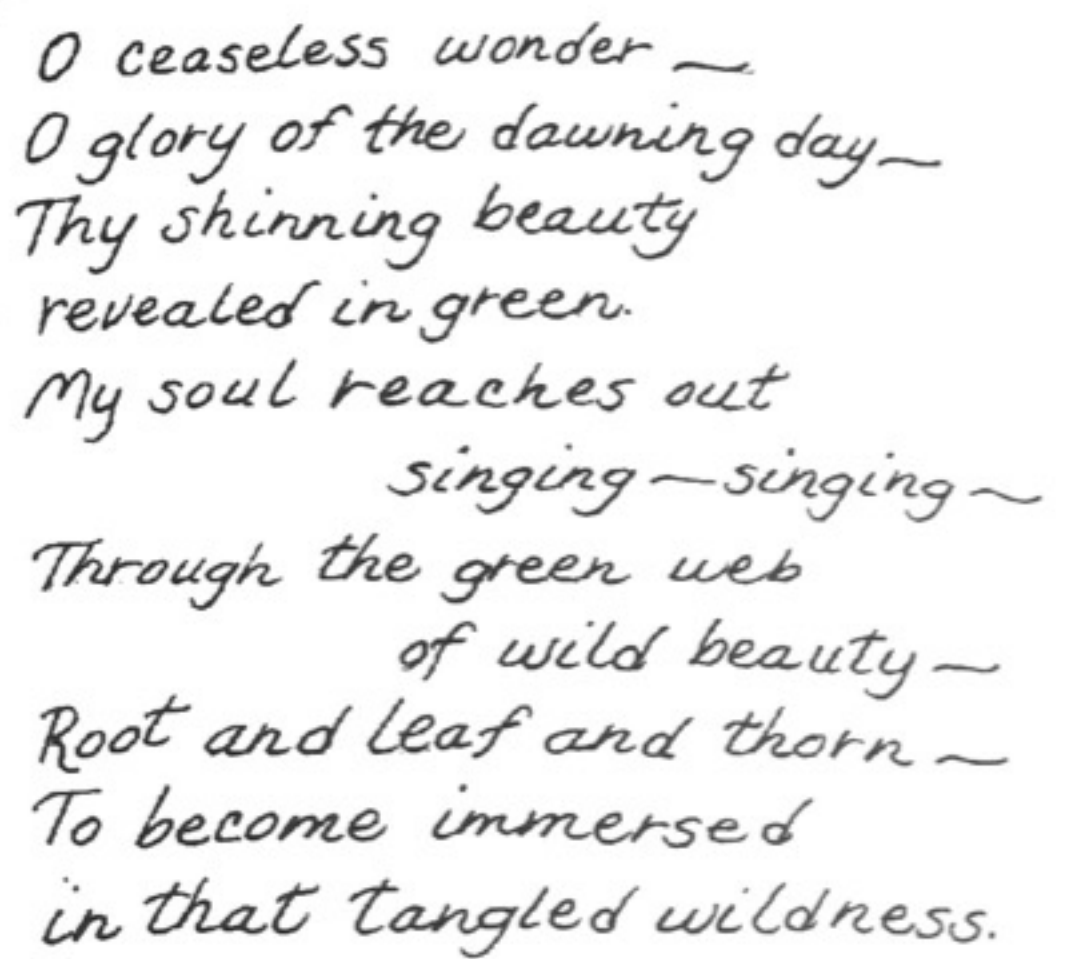 O ceaseless wonder —
O glory of the dawning day —
Thy shinning beauty
revealed in green.
My soul reaches out
singing — singing —
Through the green web
of wild beauty —
Root and leaf and thorn —
To become immersed
in that tangled wildness.